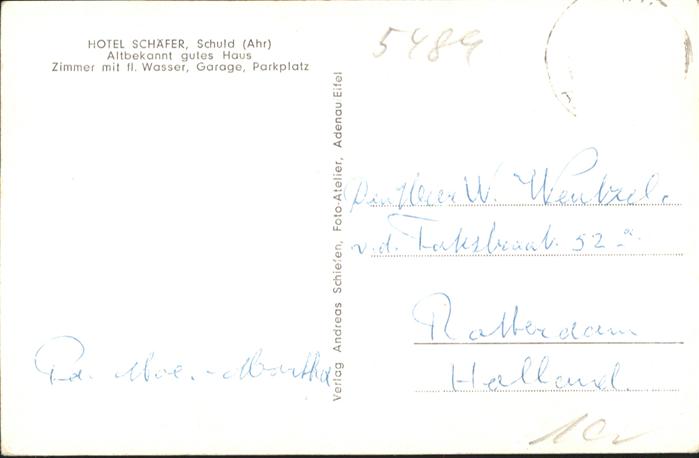 HOTEL SCHÄFER, Schuld (Ahr)
Altbekannt gutes Haus
Zimmer mit fl. Wasser, Garage, Parkplatz
5489
Verlag Andreas Schiefen, Foto-Atelier, Adenau/Eifel
W. Wentzel.
v.d. Takstraat. 52 a.
Rotterdam
Holland.
Pa. Moe. - Martha